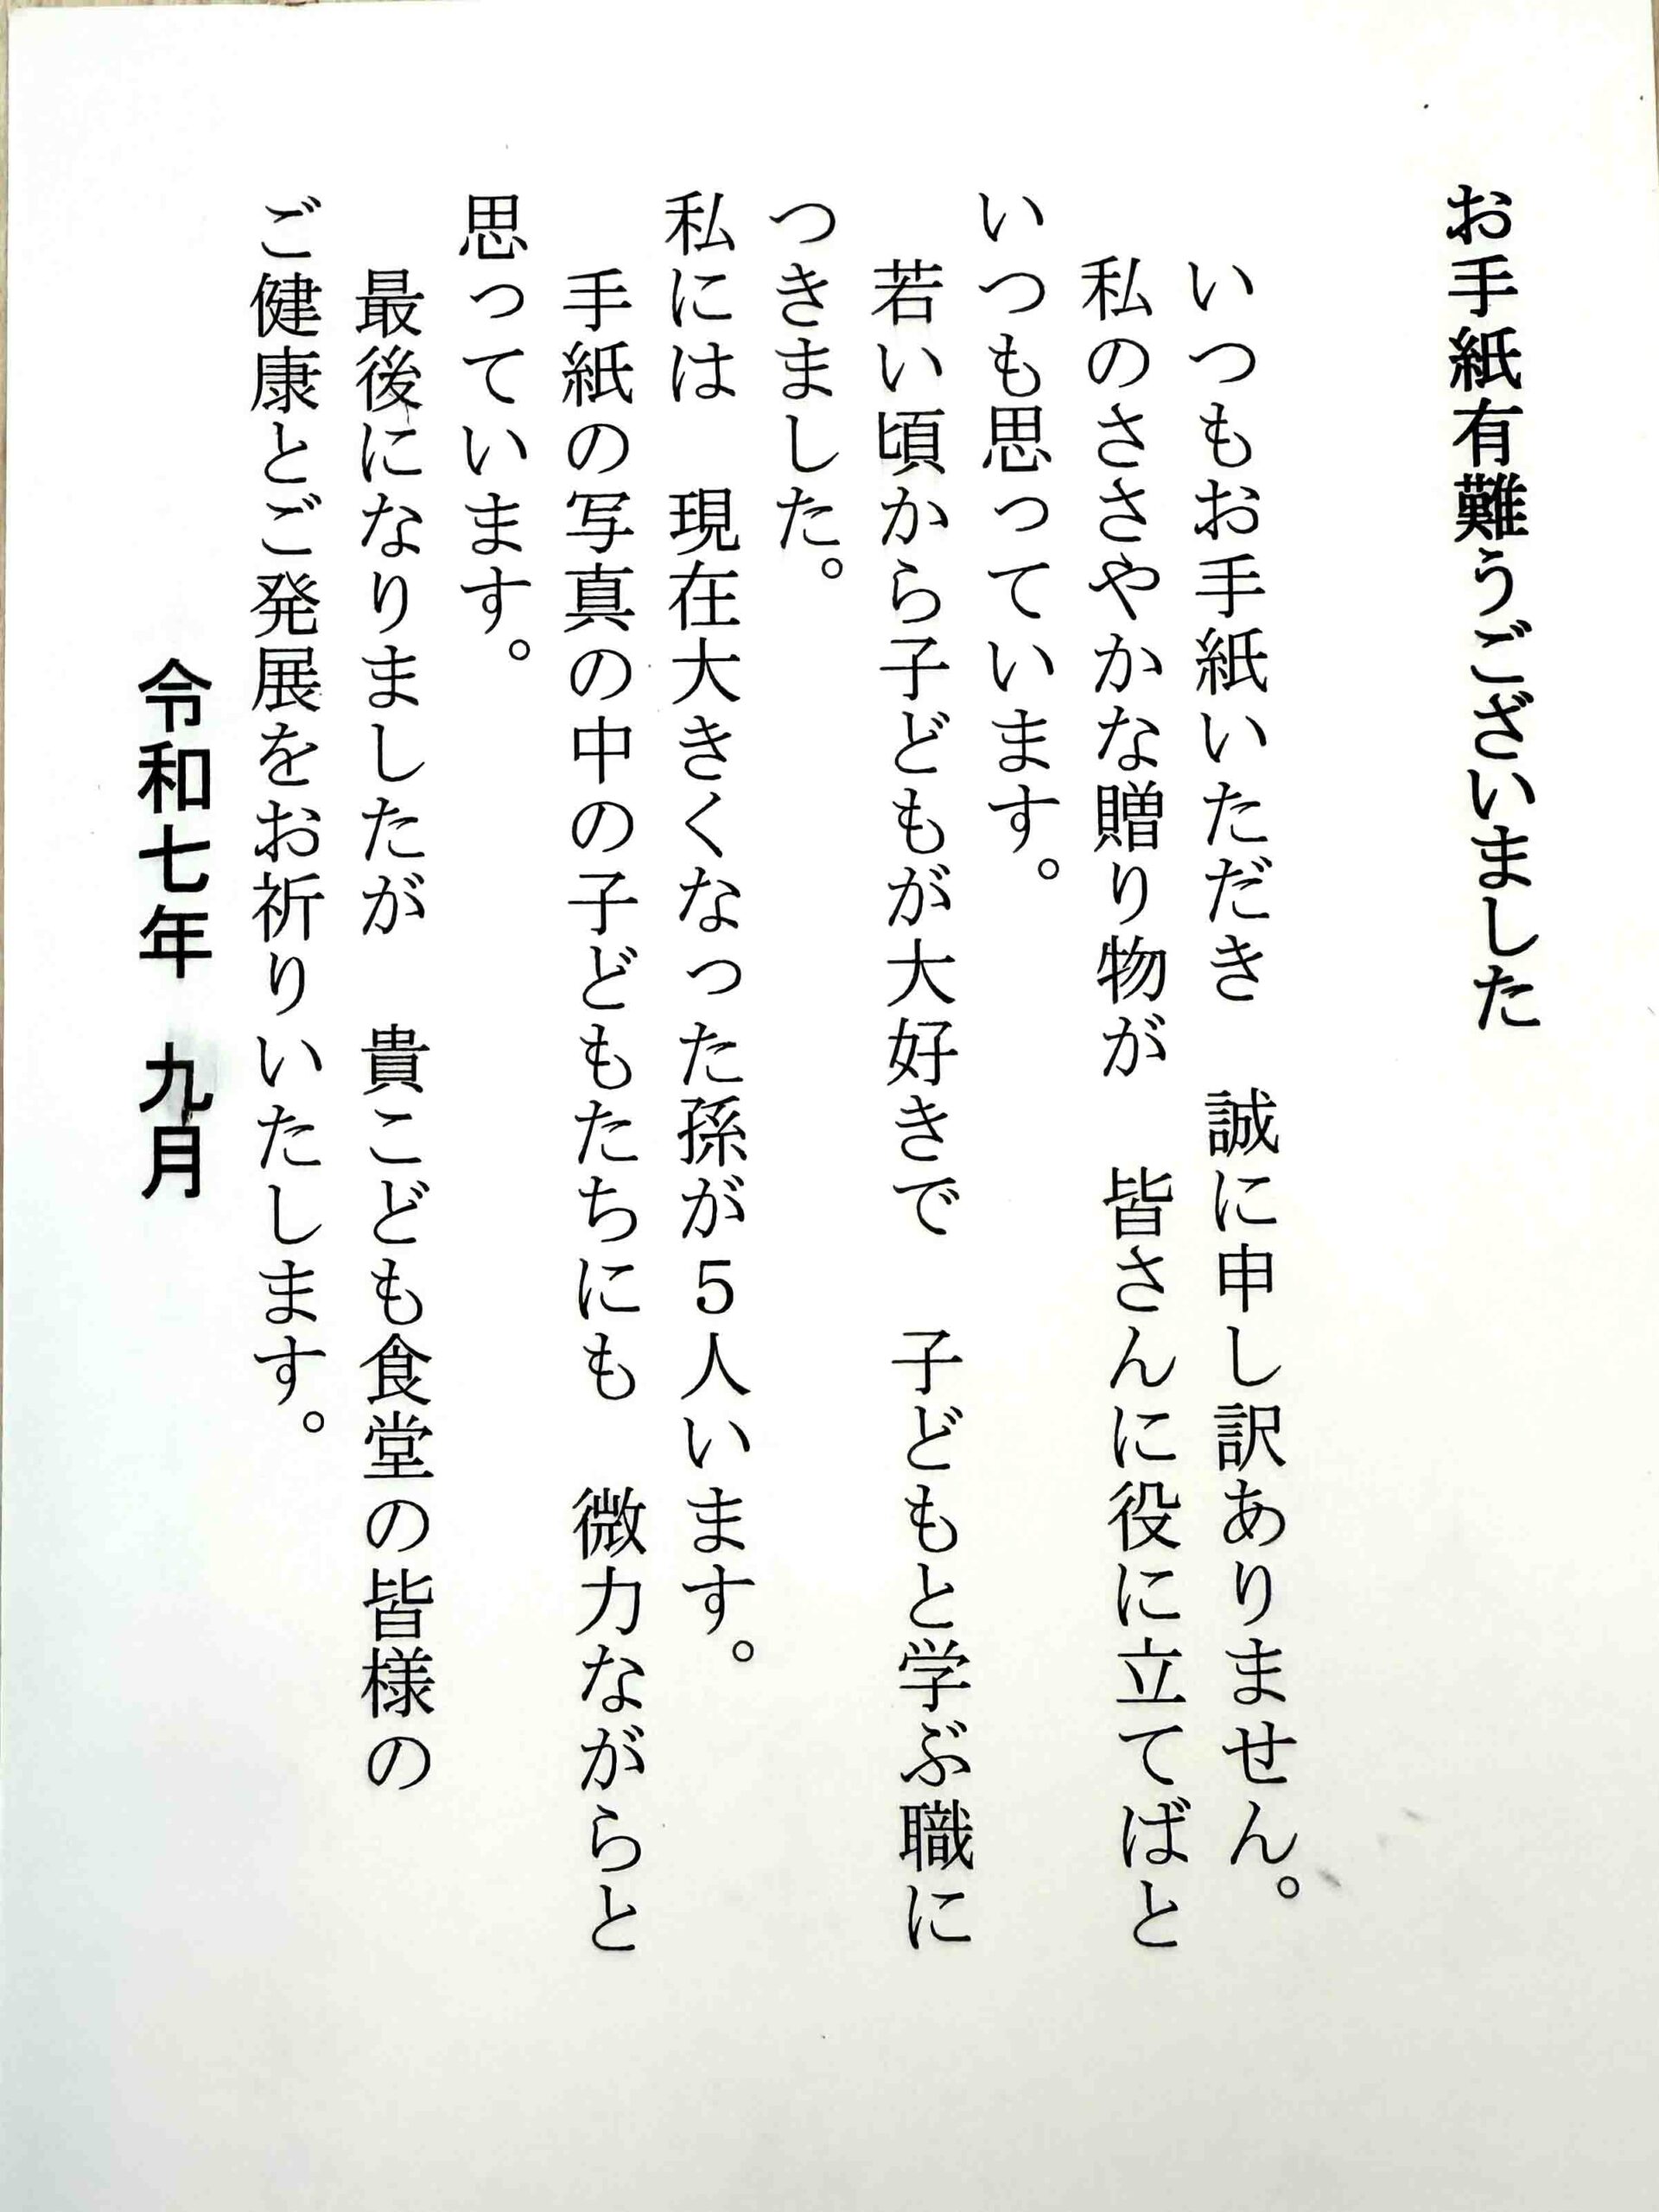 お手紙有難うございました
いつもお手紙いただき　誠に申し訳ありません。
私のささやかな贈り物が　皆さんに役に立てばと
いつも思っています。
若い頃から子どもが大好きで　子どもと学ぶ職に
つきました。
私には　現在大きくなった孫が５人います。
手紙の写真の中の子どもたちにも　微力ながらと
思っています。
最後になりましたが　貴こども食堂の皆様の
ご健康とご発展をお祈りいたします。
令和七年　九月